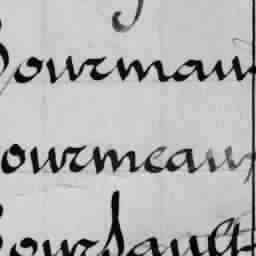 Bourmau
ourmeaux
oursault